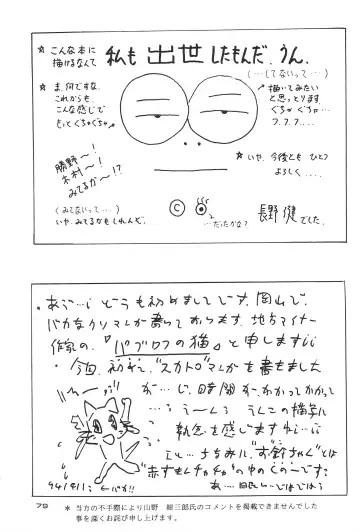 ☆ こんな本に
描けるなんて
私も 出世 したもんだ。うん。
(…してないって…)
☆ ま、何ですな、
これからも、
こんな感じで
もっとぐちゃぐちゃ
描いてみたい
と思っとります
ぐちゃ ぐちゃ…
フ.フ.フ....
勝野〜!
木村〜!
みてるか〜!?
(みてないって…)
いや、みてるかもしれんぞ。
☆ いや、今後とも ひとつ
よろしく....
©
…だったかな?
長野 健でした。
・あう…¡ どうも初めましてです、岡山で、
バカなクソマンガ書いております、地方マイナー
作家の、『パブロフの猫』と申します¡¡
・今回、初めて、"スカトロ"マンガを書きました
が…¡、時間が、かかってかかって
…う〜んう うんこの描写に
執念を感じます
ちなみに、"お鈴ちゃん"とは
"赤ずきんチャチャ"の中の
79
* 当方の不手際により山野 緇三郎氏のコメントを掲載できませんでした
事を深くお詫び申し上げます。